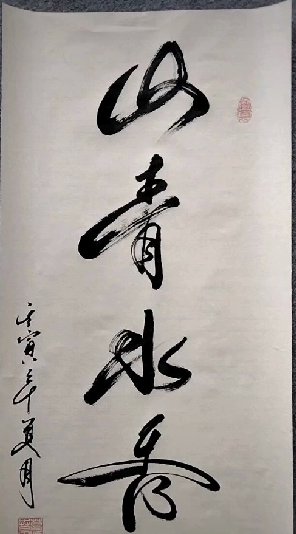 山青水秀
壬寅年夏月